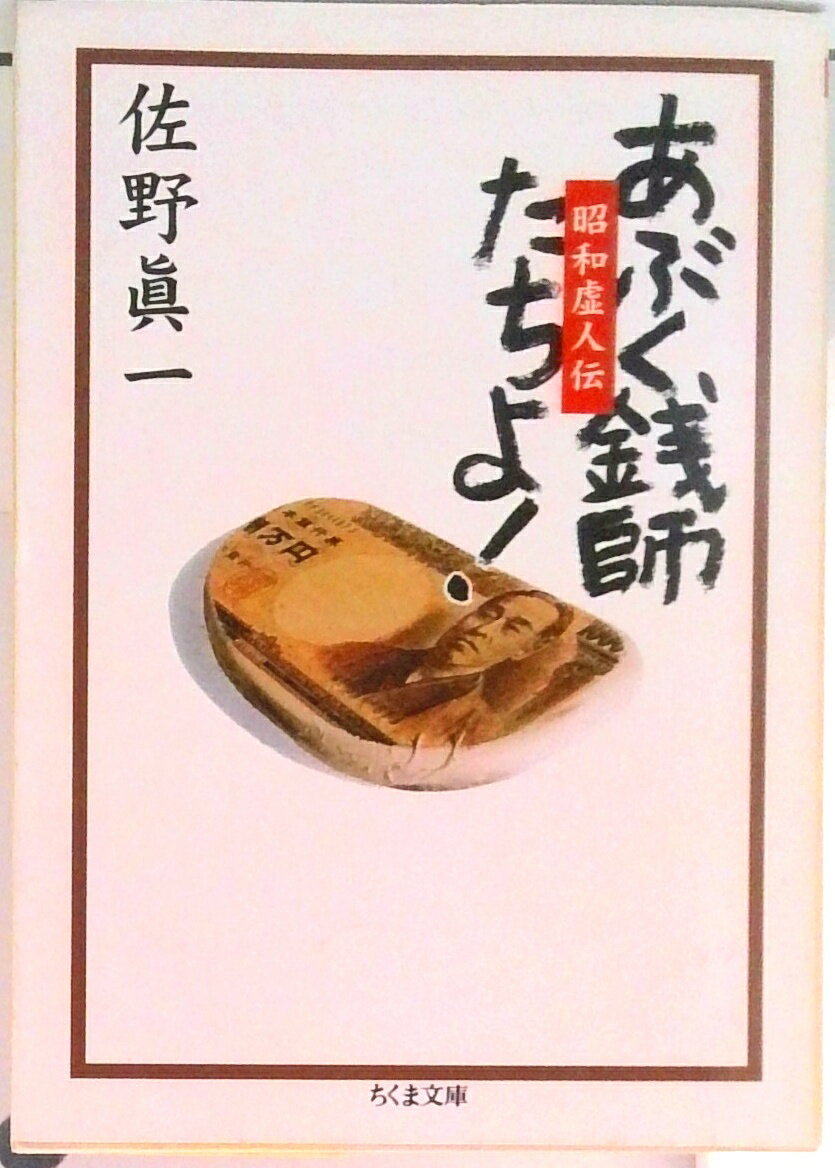 あぶく銭師
たちよ!
昭和虚人伝
佐野眞一
壱万円
ちくま文庫